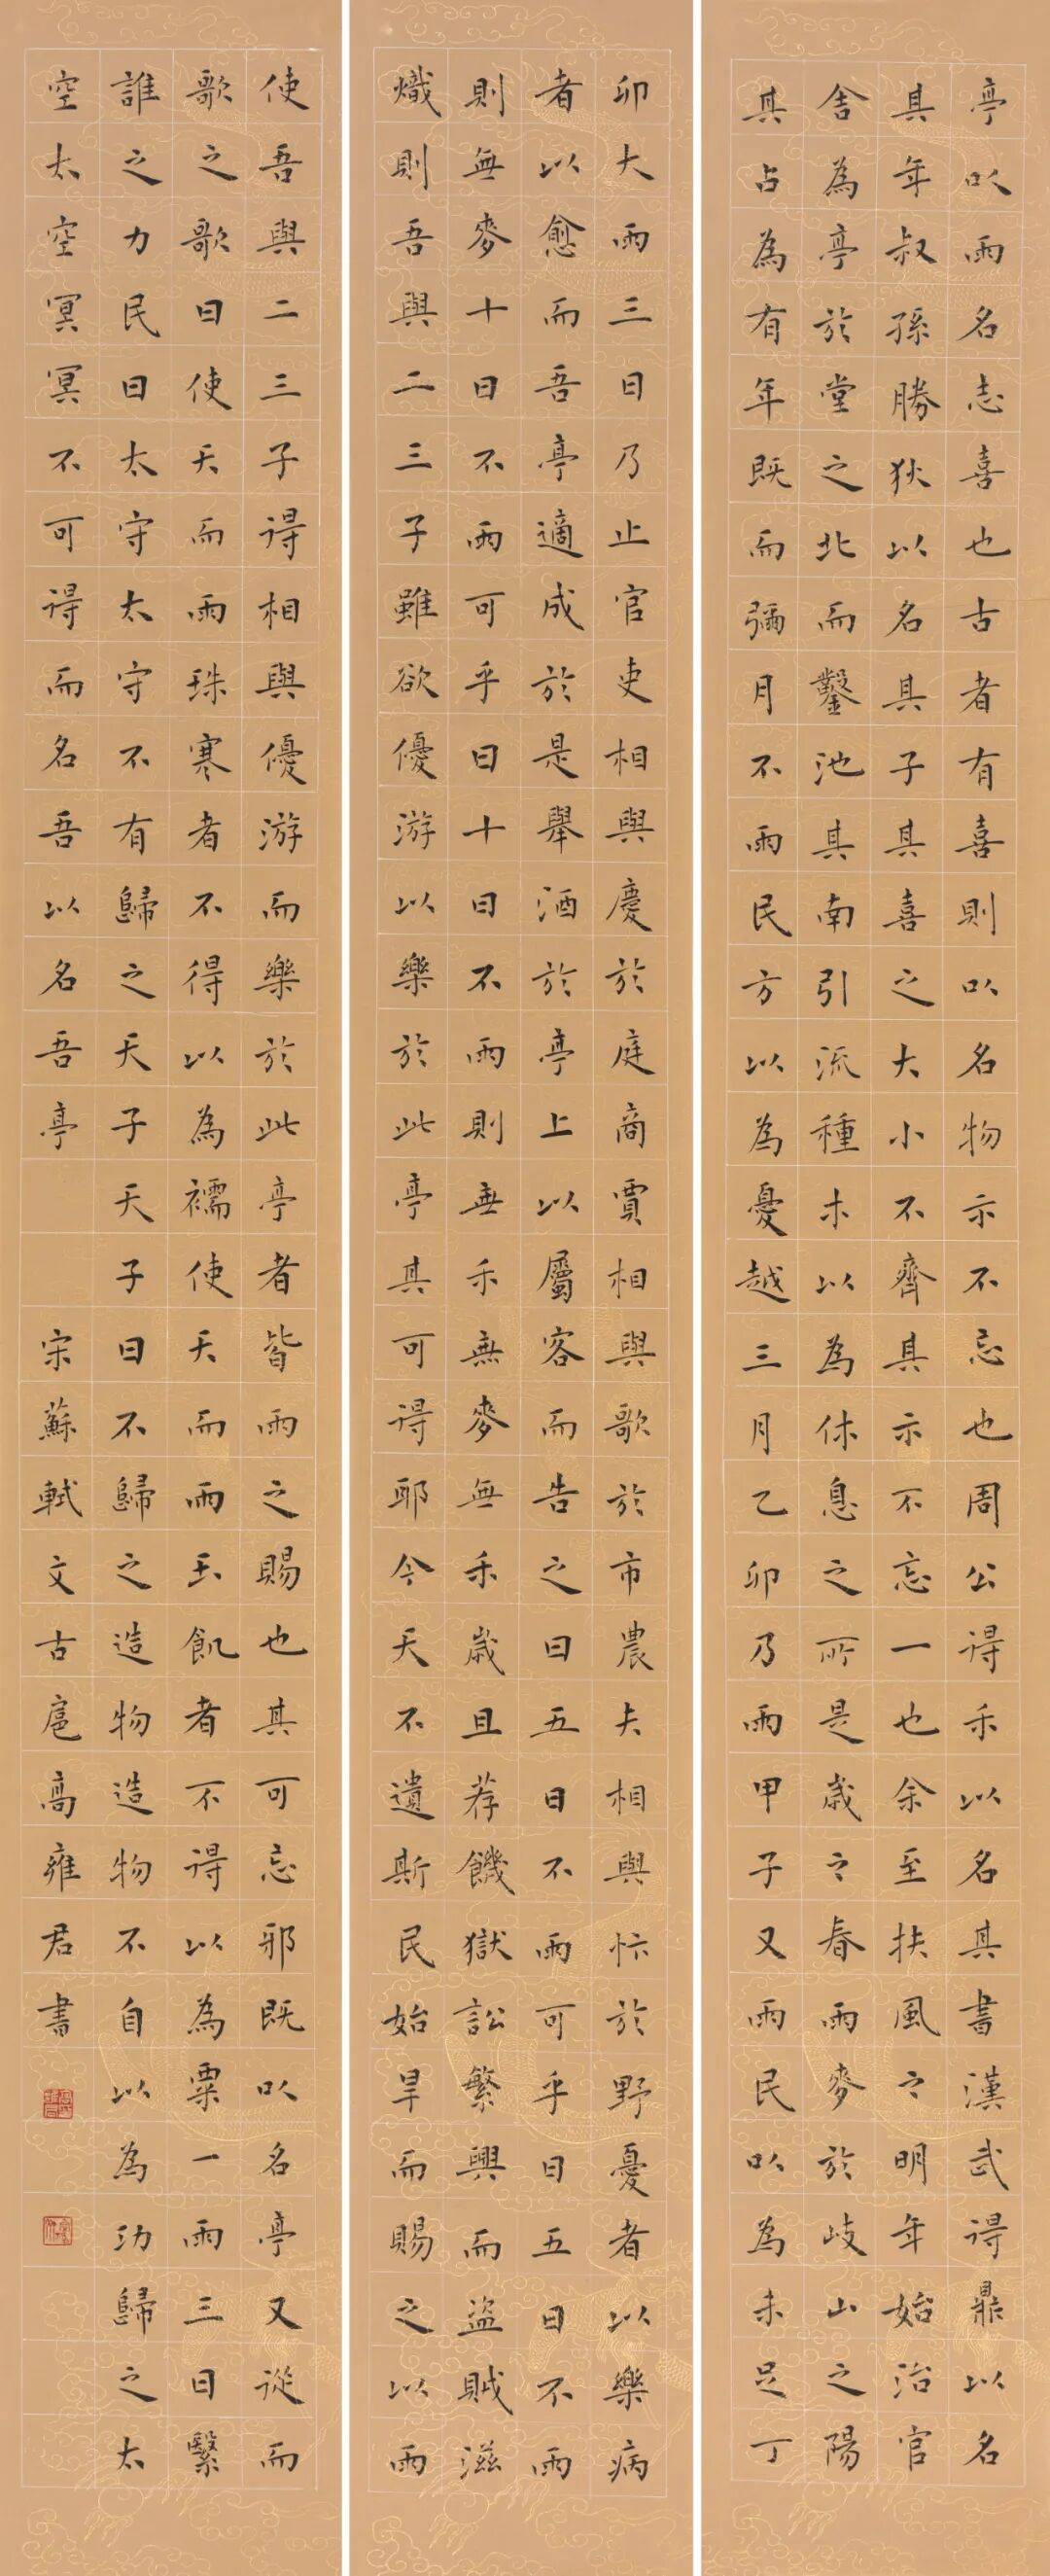 亭以雨名志喜也古者有喜則以名物示不忘也周公得禾以名其書漢武得鼎以名
其年叔孫勝狄以名其子其喜之大小不齊其示不忘一也余至扶風之明年始治官
舍為亭於堂之北而鑿池其南引流種木以為休息之所是歲之春雨麥於岐山之陽
其占為有年既而彌月不雨民方以為憂越三月乙卯乃雨甲子又雨民以為未足丁
卯大雨三日乃止官吏相與慶於庭商賈相與歌於市農夫相與忭於野憂者以樂病
者以愈而吾亭適成於是舉酒於亭上以屬客而告之曰五日不雨可乎曰五日不雨
則無麥十日不雨可乎曰十日不雨則無禾無麥無禾歲且荐饑獄訟繁興而盜賊滋
熾則吾與二三子雖欲優游以樂於此亭其可得耶今天不遺斯民始旱而賜之以雨
使吾與二三子得相與優游而樂於此亭者皆雨之賜也其可忘邪既以名亭又從而
歌之歌曰使天而雨珠寒者不得以為襦使天而雨玉飢者不得以為粟一雨三日繄
誰之力民曰太守太守不有歸之天子天子曰不歸之造物造物不自以為功歸之太
空太空冥冥不可得而名吾以名吾亭 宋蘇軾文古扈高雍君書